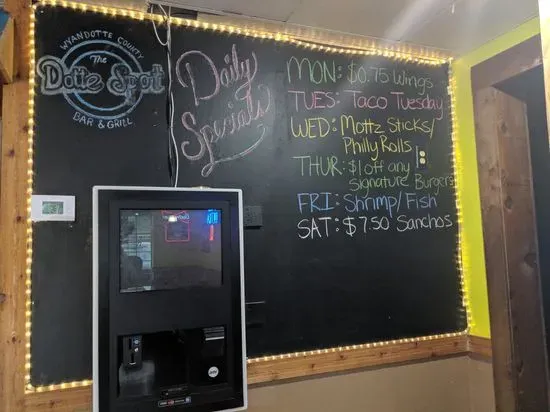 WYANDOTTE COUNTY
The
Dotte Spot
BAR & GRILL
Daily
Specials
MON: $0.75 Wings
TUES: Taco Tuesday
WED: Mottz Sticks/
Philly Rolls
THUR: $1 off any
Signature Burgers
FRI: Shrimp/Fish
SAT: $7.50 Sanchos